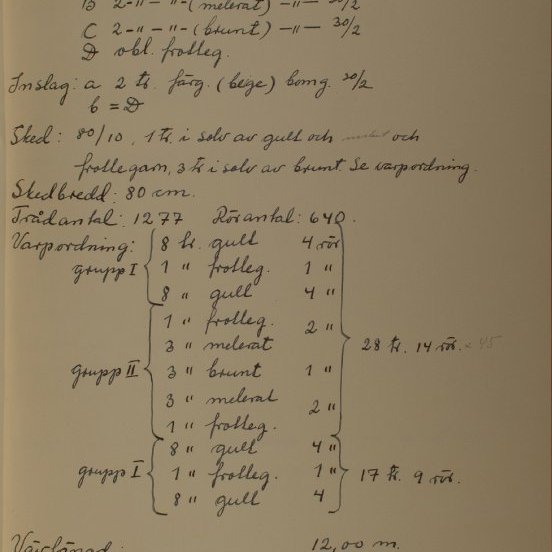 B 2-"-"-(melerat) -"- 30/2
C 2-"-"-(brunt) -"- 30/2
D obl. frotteg.
Inslag: a 2 tr. färg. (beige) bomg. 20/2
b = D
Sked: 80/10, 1 tr. i solv av gult och melerat och
frottegarn, 3 tr i solv av brunt. Se varpordning.
Skedbredd: 80 cm.
Trådantal: 1277 Rörantal: 640.
Varpordning: 8 tr. gult 4 rör
grupp I 1 " frotteg. 1 "
8 " gult 4 "
1 " frotteg. 2 "
3 " melerat 28 tr. 14 rör. × 45
grupp II 3 " brunt 1 "
3 " melerat 2 "
1 " frotteg.
8 " gult 4 "
grupp I 1 " frotteg. 1 " 17 tr. 9 rör.
8 " gult 4
Varplängd: 12,00 m.